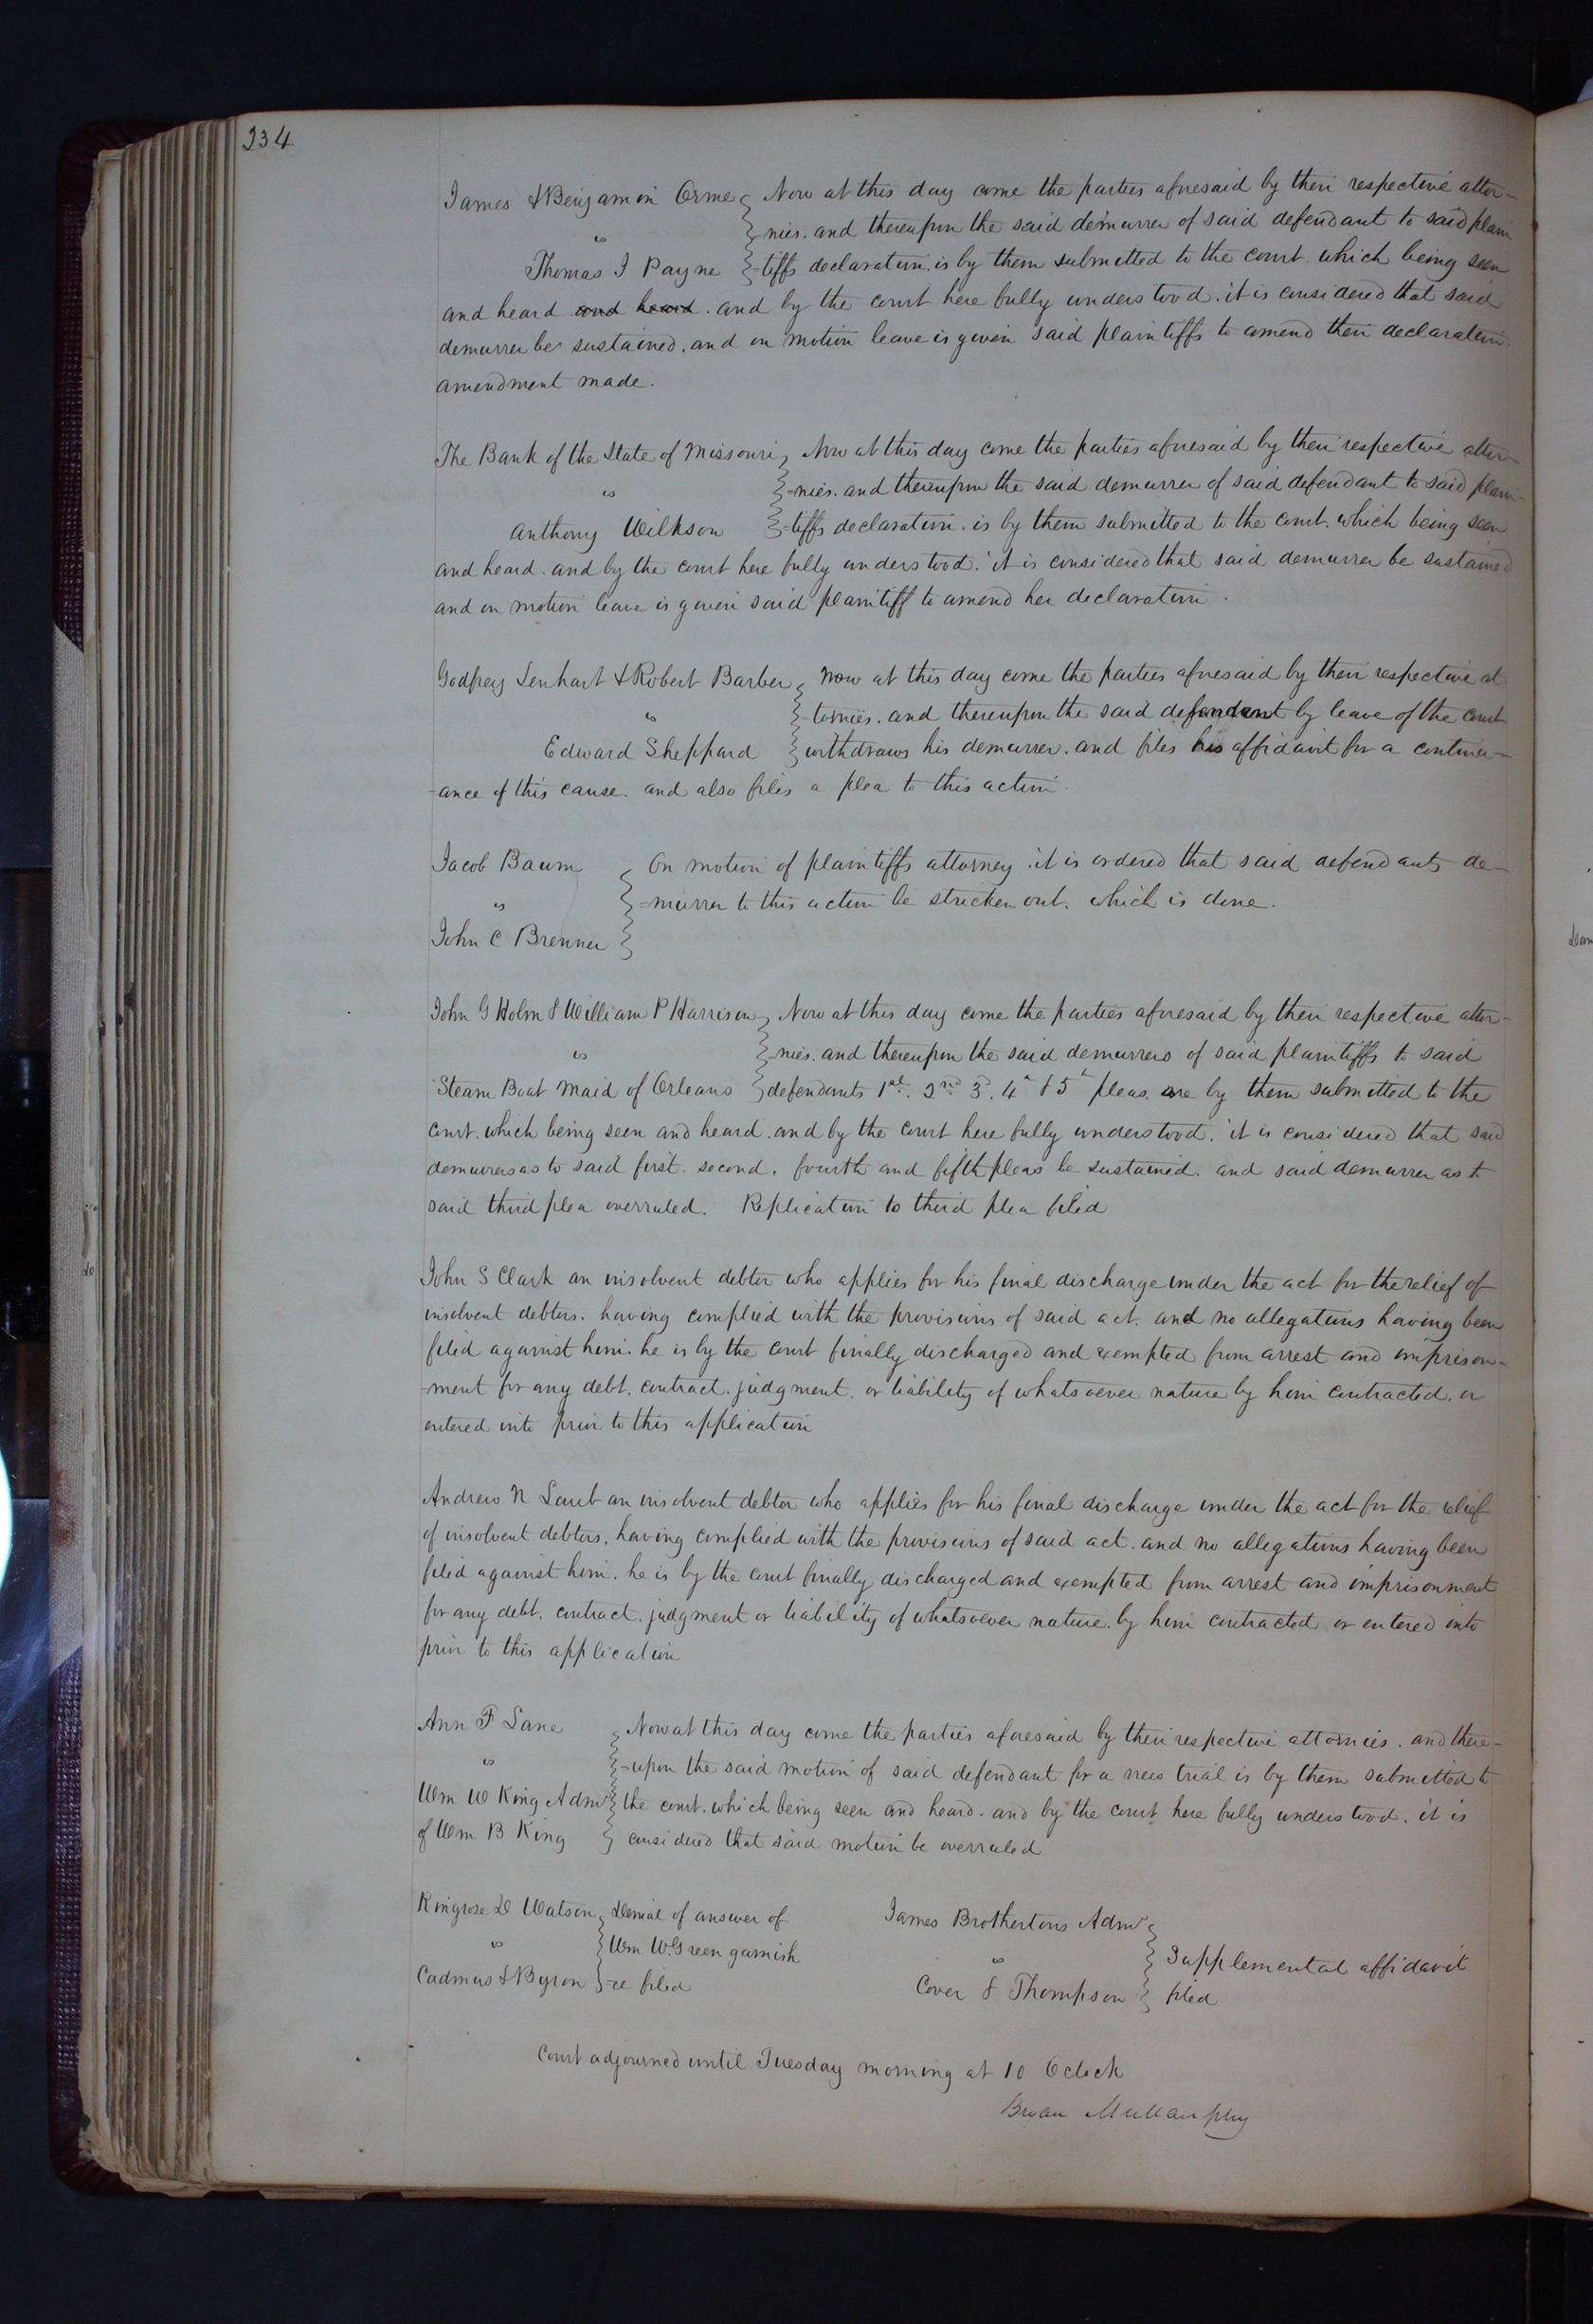 234
James & Benjamin Orme Now at this day come the parties aforesaid by their respective attor-
vs -nies. and thereupon the said demurrer of said defendant to said plain
Thomas J Payne -tiffs declaration. is by them submitted to the court. which being seen
and heard and heard. and by the court here fully understood. it is considered that said
demurrer be sustained. and on motion leave is given said plaintiffs to amend their declaration.
amendment made.
The Bank of the State of Missouri Now at this day come the parties aforesaid by their respective attor-
vs -nies. and thereupon the said demurrer of said defendant to said plain-
Anthony Wilkson -tiffs declaration. is by them submitted to the court. which being seen
and heard. and by the court here fully understood. it is considered that said demurrer be sustained
and on motion leave is given said plaintiff to amend her declaration.
Godfrey Lenhart & Robert Barber Now at this day come the parties aforesaid by their respective at-
vs -tornies. and thereupon the said defendant by leave of the court
Edward Sheppard withdraws his demurrer. and files his affidavit for a continu-
-ance of this cause. and also files a plea to this action.
Jacob Baum On motion of plaintiffs attorney. it is ordered that said defendants de-
vs -murrer to this action be stricken out. which is done.
John C Brenner
John G Holm & William P Harrison Now at this day come the parties aforesaid by their respective attor-
vs -nies. and thereupon the said demurrers of said plaintiffs to said
Steam Boat Maid of Orleans defendants 1st. 2nd 3d. 4th & 5th pleas. are by them submitted to the
court. which being seen and heard. and by the court here fully understood. it is considered that said
demurrers as to said first. second. fourth and fifth pleas be sustained. and said demurrer as to
said third plea overruled. Replication to third plea filed
John S Clark an insolvent debtor who applies for his final discharge under the act for the relief of
insolvent debtors. having complied with the provisions of said act. and no allegations having been
filed against him. he is by the court finally discharged and exempted from arrest and imprison-
-ment for any debt. contract. judgment. or liability of whatsoever nature by him contracted. or
entered into prior to this application
Andrew N Laut an insolvent debtor who applies for his final discharge under the act for the relief
of insolvent debtors. having complied with the provisions of said act. and no allegations having been
filed against him. he is by the court finally discharged and exempted from arrest and imprisonment
for any debt. contract. judgment or liability of whatsoever nature. by him contracted or entered into
prior to this application
Ann F Lane Now at this day come the parties aforesaid by their respective attornies. and there-
vs -upon the said motion of said defendant for a new trial is by them submitted to
Wm W King Admr the court. which being seen and heard. and by the court here fully understood. it is
of Wm B King considered that said motion be overruled
Ringrose D Watson Denial of answer of
vs Wm W. Green garnish
Cadmus & Byron -ee filed
James Brothertons Admr
vs Supplemental affidavit
Cover & Thompson filed
Court adjourned until Tuesday morning at 10 Oclock
Bryan Mullanphy